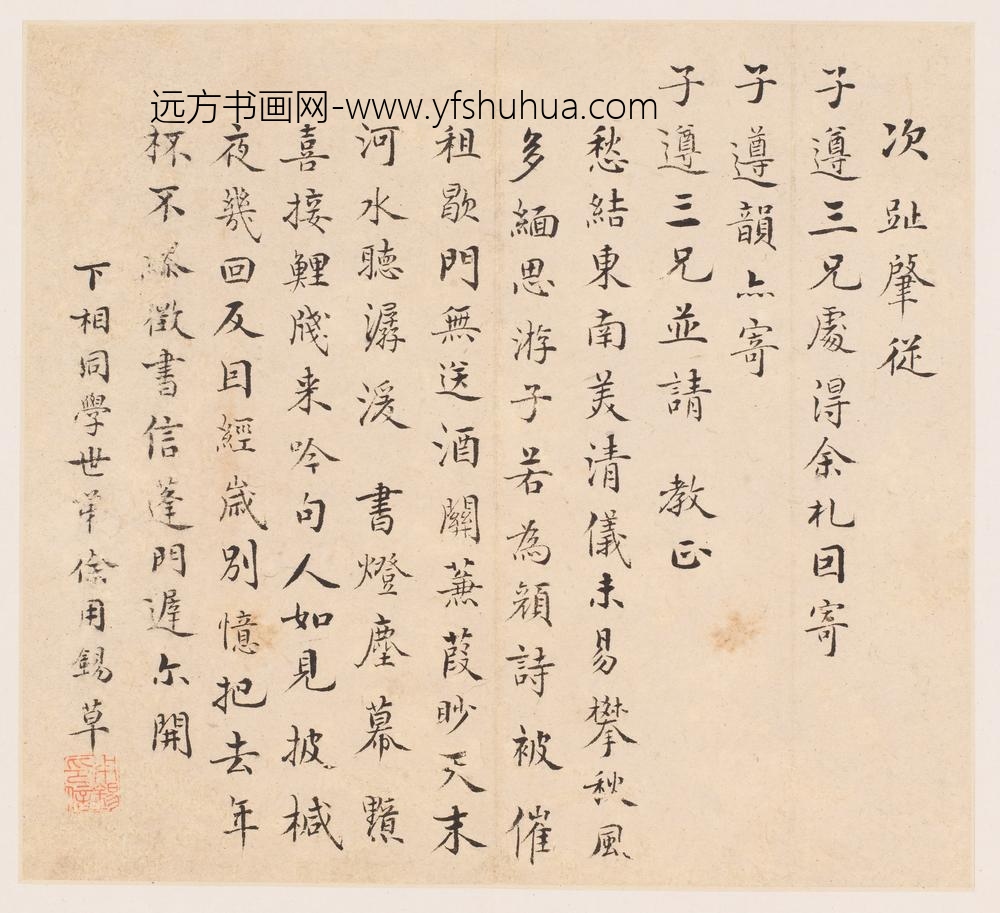 远方书画网-www.yfshuhua.com
次趾肇從
子遵三兄處得余札回寄
子遵韻亦寄
子遵三兄並請 教正
愁結東南美清儀未易攀秋風
多緬思游子若為顔詩被催
租歇門無送酒關蒹葭眇天末
河水聽潺湲 書燈塵幕黯
喜接鯉牋来吟句人如見披械
夜幾回反目經歲別憶把去年
杯不 徵書信蓬門遲尔開
下相同學世弟徐用錫草